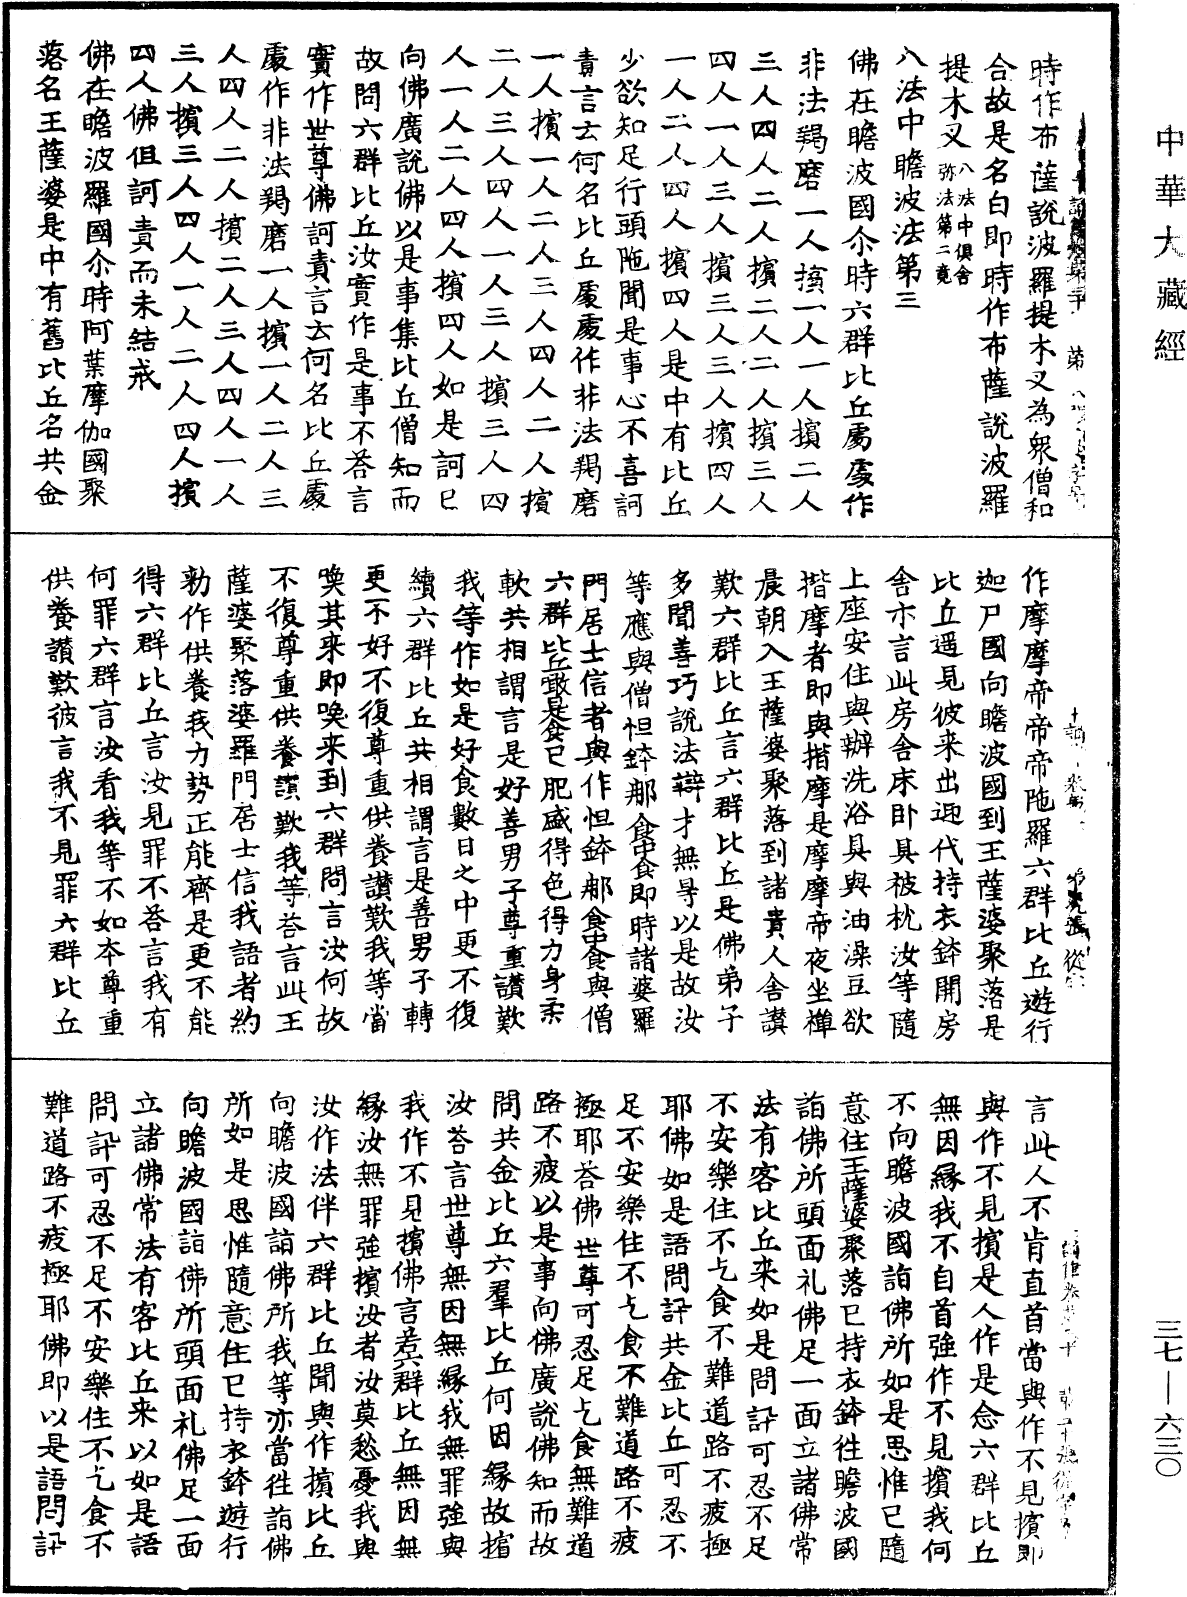 中華大藏經
時作布薩說波羅提木叉為衆僧和
合故是名白即時作布薩說波羅
提木叉 八法中俱舍弥法第二竟
八法中瞻波法第三
佛在瞻波國尒時六群比丘處處作
非法羯磨一人擯一人一人擯二人
三人四人二人擯二人二人擯三人
四人一人三人擯三人三人擯四人
一人二人四人擯四人是中有比丘
少欲知足行頭陁聞是事心不喜訶
責言云何名比丘處處作非法羯磨
一人擯一人二人三人四人二人擯
二人三人四人一人三人擯三人四
人一人二人四人擯四人如是訶已
向佛廣說佛以是事集比丘僧知而
故問六群比丘汝實作是事不荅言
實作世尊佛訶責言云何名比丘處
處作非法羯磨一人擯一人二人三
人四人二人擯二人三人四人一人
三人擯三人四人一人二人四人擯
四人佛但訶責而未結戒
佛在瞻波羅國尒時阿葉摩伽國聚
落名王薩婆是中有舊比丘名共金
作摩摩帝帝帝陁羅六群比丘遊行
迦尸國向瞻波國到王薩婆聚落是
比丘遥見彼来出迎代持衣鉢開房
舎示言此房舎床卧具被枕汝等隨
上座安住與辦洗浴具與油澡豆欲
揩摩者即與揩摩是摩摩帝夜坐禪
晨朝入王薩婆聚落到諸貴人舎讃
歎六群比丘言六群比丘是佛弟子
多聞善巧說法辯才無㝵以是故汝
等應與僧怛鉢那食中食即時諸婆羅
門居士信者與作怛鉢那食中食與僧
六群比丘噉是食已肥盛得色得力身柔
軟共相謂言是好善男子尊重讃歎
我等作如是好食數日之中更不復
續六群比丘共相謂言是善男子轉
更不好不復尊重供養讃歎我等當
喚其来即喚来到六群問言汝何故
不復尊重供養讃歎我等荅言此王
薩婆聚落婆羅門居士信我語者約
勑作供養我力勢正能齊是更不能
得六群比丘言汝見罪不荅言我有
何罪六群言汝看我等不如本尊重
供養讃歎彼言我不見罪六群比丘
言此人不肯直首當與作不見擯即
與作不見擯是人作是念六群比丘
無因緣我不自首強作不見擯我何
不向瞻波國詣佛所如是思惟已隨
意住王薩婆聚落已持衣鉢往瞻波國
詣佛所頭面礼佛足一面立諸佛常
法有客比丘来如是問訊可忍不足
不安樂住不乞食不難道路不疲極
耶佛如是語問訊共金比丘可忍不
足不安樂住不乞食不難道路不疲
極耶荅佛世尊可忍足乞食無難道
路不疲以是事向佛廣說佛知而故
問共金比丘六羣比丘何因緣故擯
汝荅言世尊無因無緣我無罪強與
我作不見擯佛言若六群比丘無因無
緣汝無罪強擯汝者汝莫愁憂我與
汝作法伴六群比丘聞與作擯比丘
向瞻波國詣佛所我等亦當往詣佛
所如是思惟隨意住已持衣鉢遊行
向瞻波國詣佛所頭面礼佛足一面
立諸佛常法有客比丘来以如是語
問訊可忍不足不安樂住不乞食不
難道路不疲極耶佛即以是語問訊
三七—六三〇